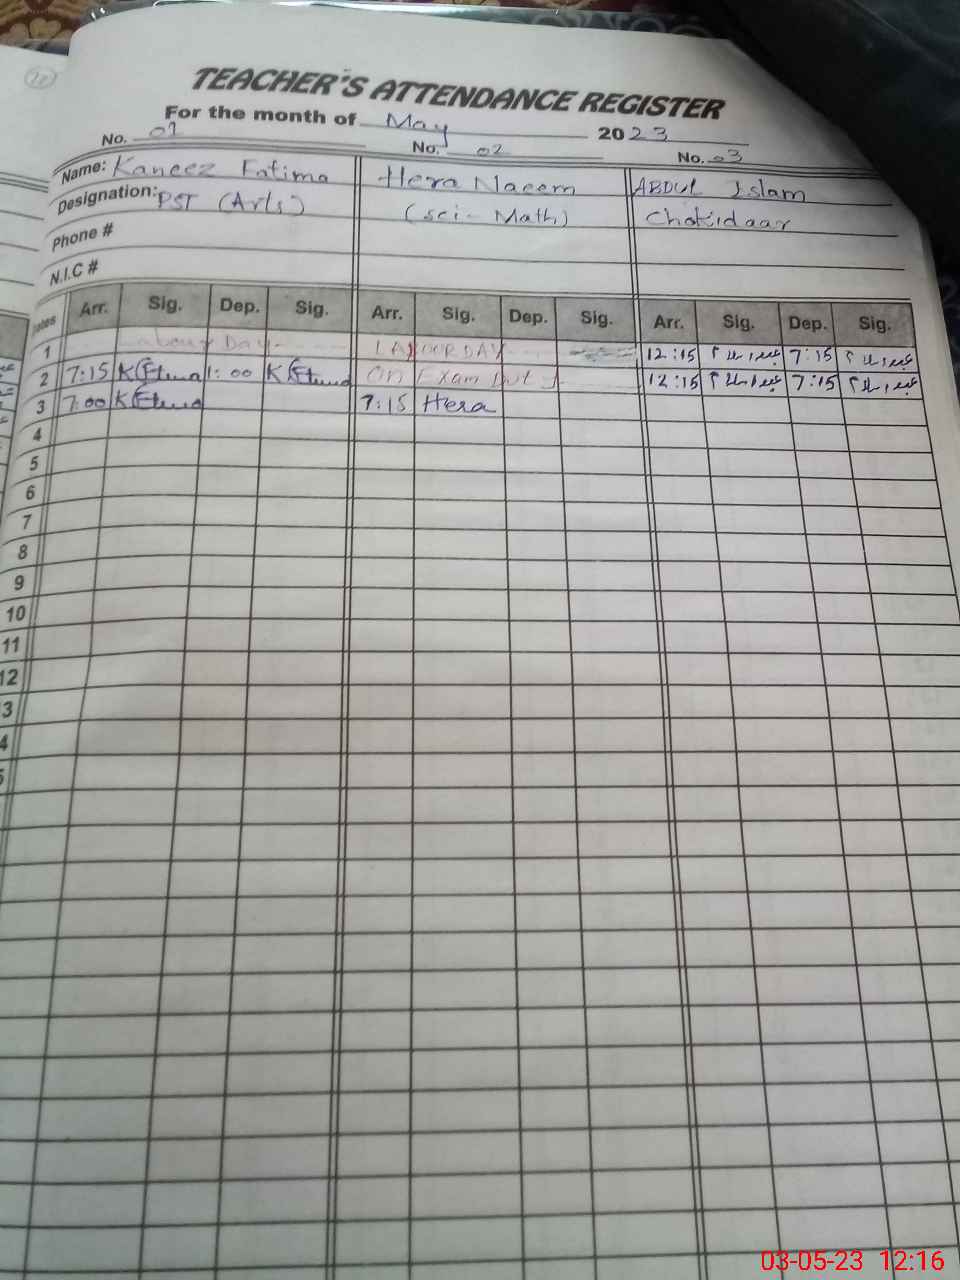 12
TEACHER'S ATTENDANCE REGISTER
For the month of May 2023
No. 01 No. 02 No. 03
Name: Kaneez Fatima Hera Naeem ABDUL Islam
Designation: PST (Arts) (sci- Math) Chokidaar
Phone #
N.I.C #
Dates Arr. Sig. Dep. Sig. Arr. Sig. Dep. Sig. Arr. Sig. Dep. Sig.
1 Labour Day LABOUR DAY 12:15 7:15
2 7:15 1:00 On Exam Duty 12:15 7:15
3 7:00 7:15 Hera
4
5
6
7
8
9
10
11
12
3
4
5
03-05-23 12:16